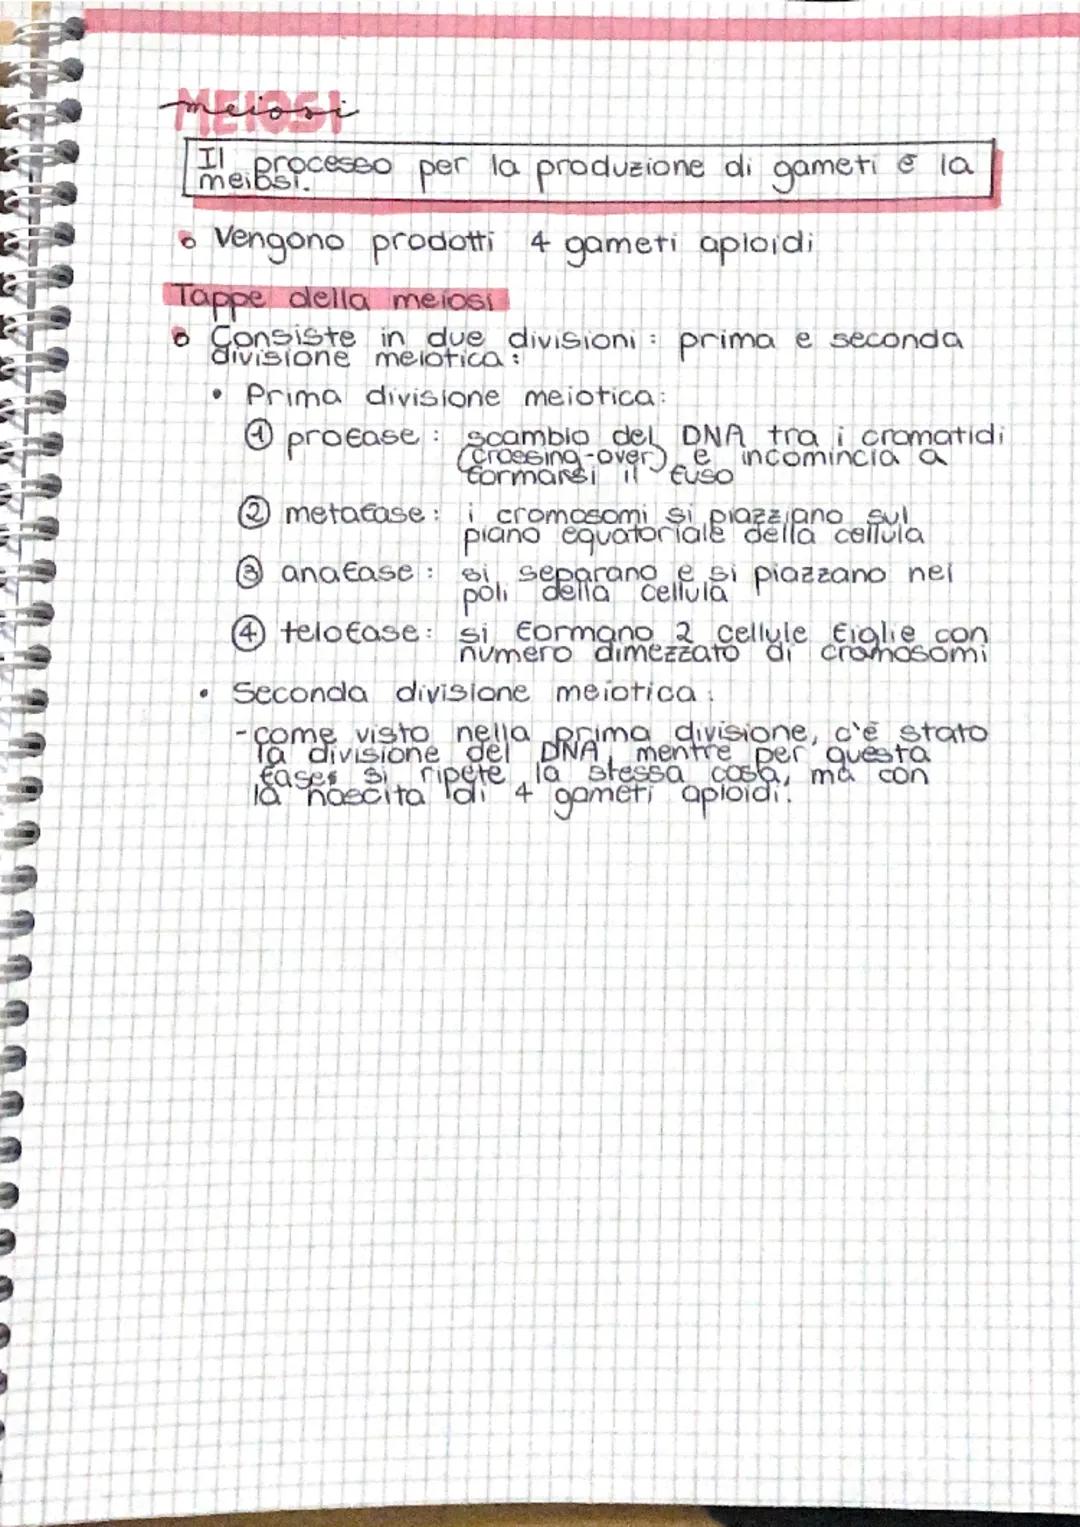 MEIOSI
meiosi
Il processo per la produzione di gameti è la
meiosi.
Vengono prodotti 4 gameti aploidi
Tappe della meiosi
Consiste in due divisioni: prima e seconda
divisione meiotica:
• Prima divisione meiotica:
① profase: scambio del DNA tra i cromatidi
(crossing-over) e incomincia a
formarsi il fuso
② metafase: i cromosomi si piazziano sul
piano equatoriale della cellula
③ anafase: si separano e si piazzano nei
poli della cellula
④ telofase: si formano 2 cellule figlie con
numero dimezzato di cromosomi
• Seconda divisione meiotica:
-come visto nella prima divisione, c'è stato
la divisione del DNA, mentre per questa
fases si ripete la stessa cosa, ma con
la nascita di 4 gameti aploidi.